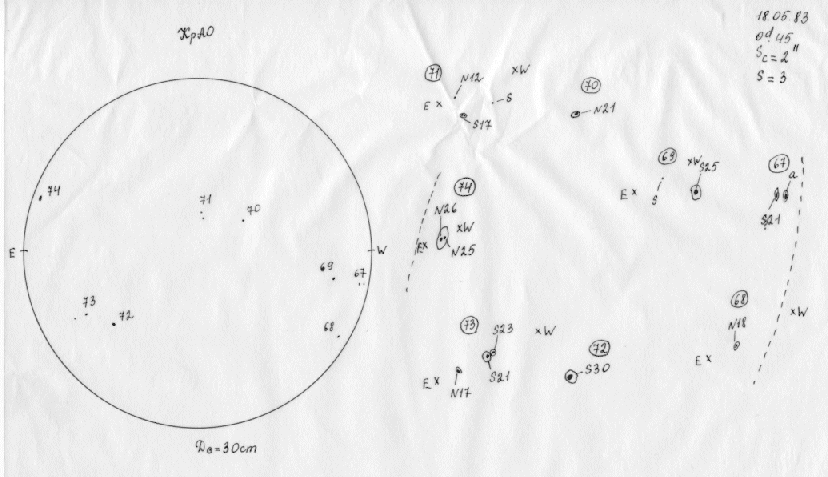 КрАО
18.05.83
od 45
Sc=2"
S=3
74
71
70
E
W
69
67
73
72
68
D⊙=30cm
71
N12
xW
E x
S
S17
70
N21
69
xW
S25
E x
S
67
a
S21
74
N26
xW
Ex
N25
68
N18
xW
E x
73
S23
xW
E x
N17
S21
72
S30